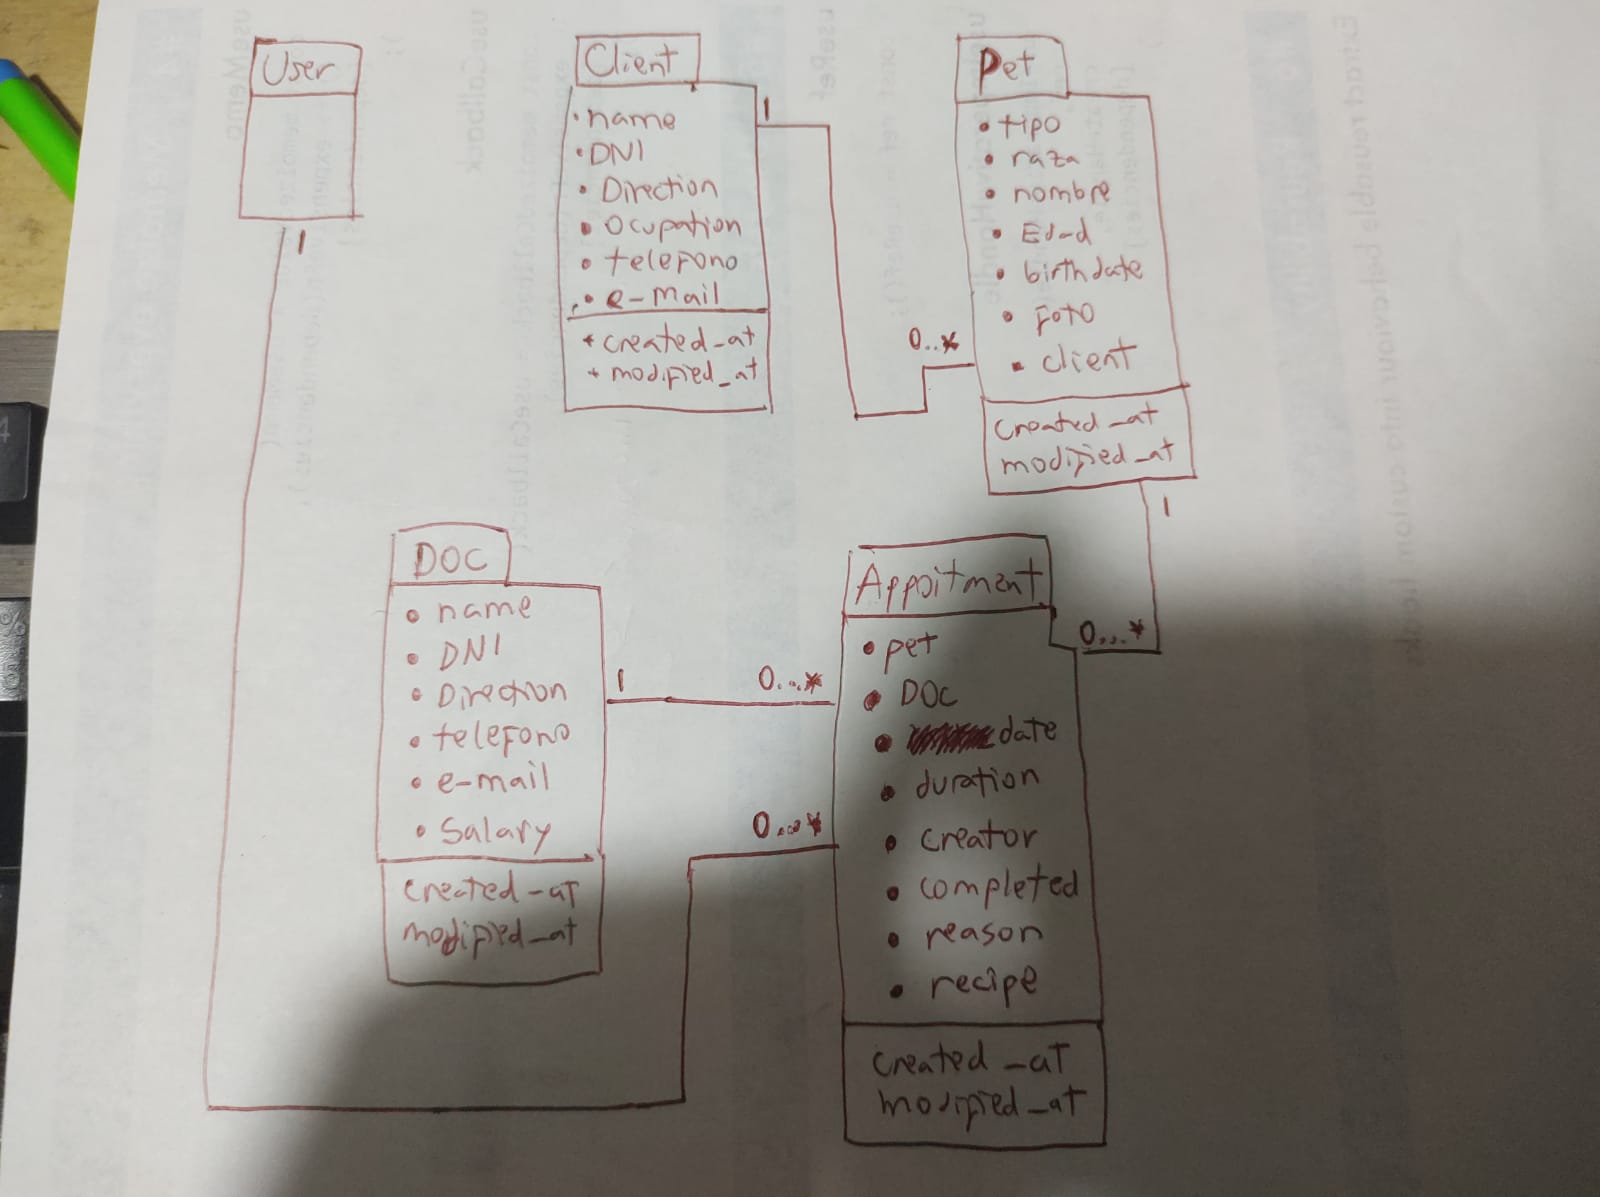 User
1
Client
• name
• DNI
• Direction
• Ocupation
• telefono
• e-mail
+ created_at
+ modified_at
1
0..*
Pet
• tipo
• raza
• nombre
• Edad
• birthdate
• Foto
• client
created_at
modified_at
1
0...*
DOC
• name
• DNI
• Direction
• telefono
• e-mail
• Salary
created_at
modified_at
1
0...*
0...*
Appoitment
• pet
• DOC
• date
• duration
• creator
• completed
• reason
• recipe
created_at
modified_at